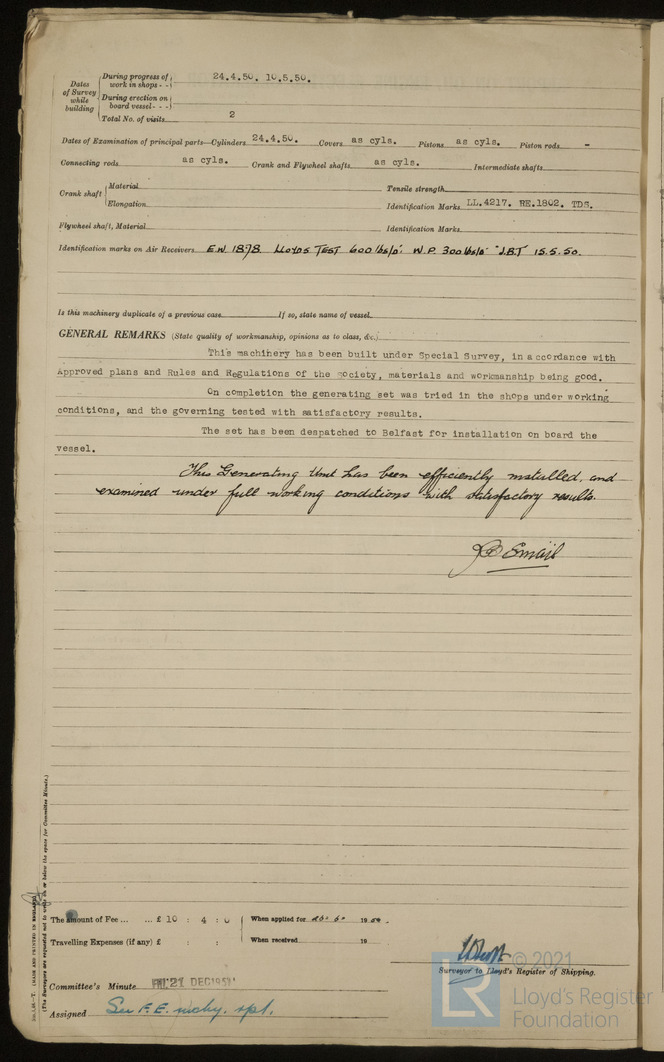 Dates of Survey while building
During progress of work in shops - - 24.4.50. 10.5.50.
During erection on board vessel - - -
Total No. of visits 2
Dates of Examination of principal parts—Cylinders 24.4.50. Covers as cyls. Pistons as cyls. Piston rods -
Connecting rods as cyls. Crank and Flywheel shafts as cyls. Intermediate shafts
Crank shaft Material Tensile strength
Elongation Identification Marks LL.4217. RE.1802. TDS.
Flywheel shaft, Material Identification Marks
Identification marks on Air Receivers E.W. 1878. LLOYDS TEST 600 lbs/□" W.P. 300 lbs/□" J.B.T 15.5.50.
Is this machinery duplicate of a previous case If so, state name of vessel
GENERAL REMARKS (State quality of workmanship, opinions as to class, &c.)
This machinery has been built under Special Survey, in accordance with
Approved plans and Rules and Regulations of the society, materials and workmanship being good.
On completion the generating set was tried in the shops under working
conditions, and the governing tested with satisfactory results.
The set has been despatched to Belfast for installation on board the
vessel.
This Generating Unit has been efficiently installed, and
examined under full working conditions with satisfactory results.
Smail
(The Surveyors are requested not to write on or below the space for Committee Minute.)
(MADE AND PRINTED IN ENGLAND)
The amount of Fee ... ... £ 10 : 4 : 0 When applied for 19
Travelling Expenses (if any) £ : : When received 19
Surveyor to Lloyd's Register of Shipping.
Committee's Minute FRI. 21 DEC 1951
Assigned See F.E. mchy. rpt.
© 2021
LR
Lloyd's Register
Foundation